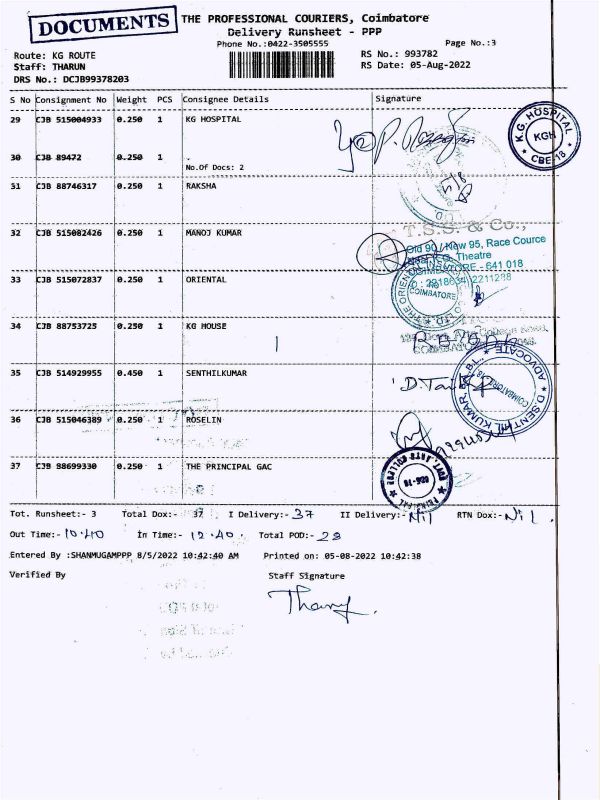 DOCUMENTS
THE PROFESSIONAL COURIERS, Coimbatore
Delivery Runsheet - PPP
Phone No.:0422-3505555 Page No.:3
Route: KG ROUTE RS No.: 993782
Staff: THARUN RS Date: 05-Aug-2022
DRS No.: DCJB99378203
S No Consignment No Weight PCS Consignee Details Signature
29 CJB 515004933 0.250 1 KG HOSPITAL
K.G. HOSPITAL
KGH
CBE-18
30 CJB 89472 0.250 1 .
No.Of Docs: 2
31 CJB 88746317 0.250 1 RAKSHA
T.S.S. & Co.,
32 CJB 515082426 0.250 1 MANOJ KUMAR
Old 90 / New 95, Race Cource
Theatre
COIMBATORE - 641 018
33 CJB 515072837 0.250 1 ORIENTAL
2211238
COIMBATORE
34 CJB 88753725 0.250 1 KG HOUSE
35 CJB 514929955 0.450 1 SENTHILKUMAR
D.SENTHIL KUMAR, B.L.
ADVOCATE
COIMBATORE-18
36 CJB 515046389 0.250 1 ROSELIN
37 CJB 88699330 0.250 1 THE PRINCIPAL GAC
GOVT. ARTS COLLEGE
CBE-18
PRINCIPAL
Tot. Runsheet:- 3 Total Dox:- 37 I Delivery:- 37 II Delivery:- Nil RTN Dox:- Nil.
Out Time:- 10.40 In Time:- 12.40. Total POD:- 28
Entered By :SHANMUGAMPPP 8/5/2022 10:42:40 AM Printed on: 05-08-2022 10:42:38
Verified By Staff Signature